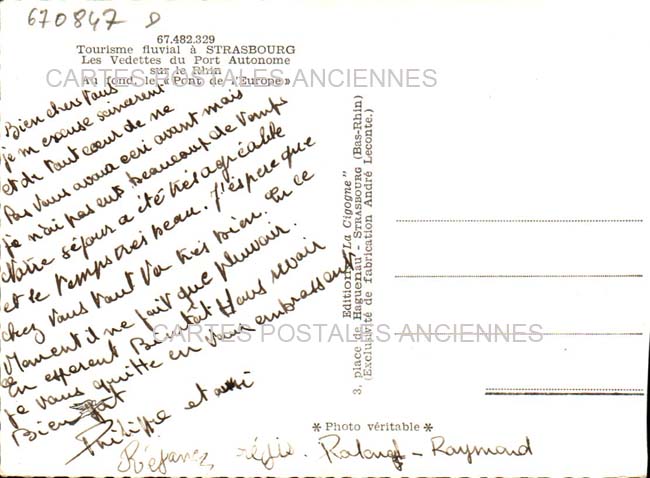 670847 D
67.482.329
Tourisme fluvial à STRASBOURG
Les Vedettes du Port Autonome
sur le Rhin
Au fond, le « Pont de l'Europe »
CARTES POSTALES ANCIENNES
Bien chers Vous
je m'excuse sincèrement
et de tout cœur de ne
Pas Vous avoir écri avant mais
je n'ai pas eut beaucoup de temps
Notre séjour a été très agréable
et le temps très beau. J'espère que
chez Vous tout Va très bien. En ce
Moment il ne fait que pleuvoir.
En esperent Bientôt Vous revoir
je vous quitte en Vous embrassant
Bien fort
Philippe et
Réjane régis. Roland - Raymond
CARTES POSTALES ANCIENNES
Editions "La Cigogne"
3, place de Haguenau - STRASBOURG (Bas-Rhin)
(Exclusivité de fabrication André Leconte.)
* Photo véritable *